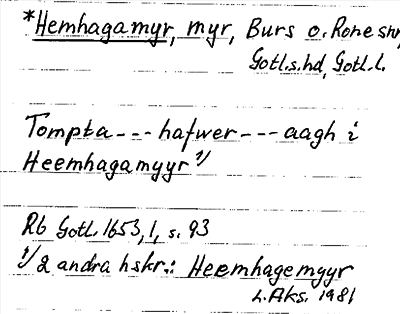 *Hemhagamyr, myr, Burs o. Rone snr
Gotl.s.hd, Gotl.l.
Tompta --- hafwer --- aagh i
Heemhagamyyr 1/
Rb Gotl. 1653, 1, s. 93
1/ 2 andra hskr.: Heemhagemyyr
L. Aks. 1981